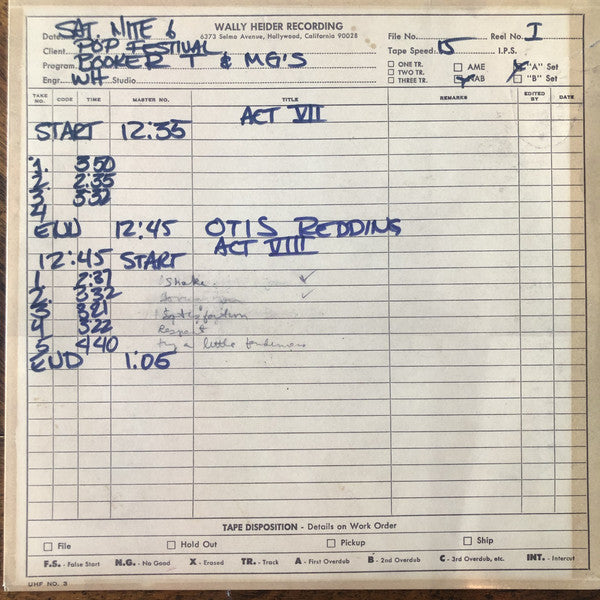 WALLY HEIDER RECORDING
6373 Selma Avenue, Hollywood, California 90028
Date SAT. NITE 6 File No. Reel No. I
Client POP FESTIVAL Tape Speed 15 I.P.S.
Program BOOKER T & MG'S
ONE TR. AME "A" Set
TWO TR.
THREE TR. NAB "B" Set
Engr. WH Studio
TAKE NO. CODE TIME MASTER NO. TITLE REMARKS EDITED BY DATE
ACT VII
START 12:35
1. 3:50
2. 2:35
3 3:32
4
END 12:45 OTIS REDDING
ACT VIII
12:45 START
1. 2:37 Shake
2. 3:32
3 3:21
4 3:22 Respect
5 4:40 try a little tenderness
END 1:05
TAPE DISPOSITION - Details on Work Order
File Hold Out Pickup Ship
F.S. - False Start N.G. - No Good X - Erased TR. - Track A - First Overdub B - 2nd Overdub C - 3rd Overdub, etc. INT. - Intercut
UHF NO. 3